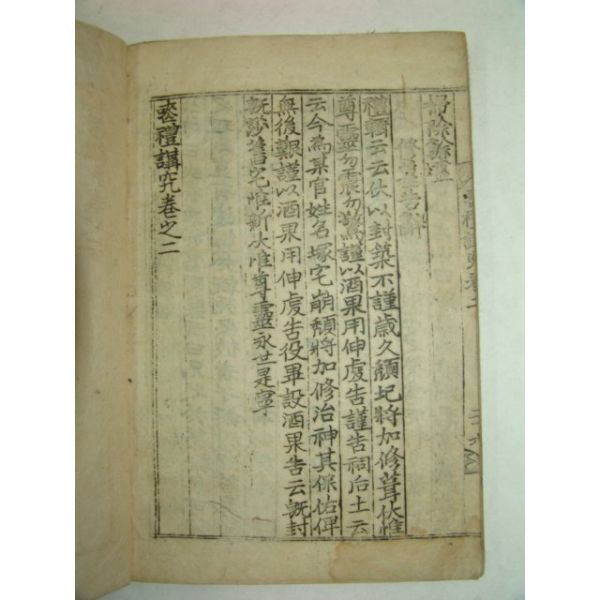 掃除
修墓告辭
禮輯云云伏以封築不謹歲久頹圮將加修葺伏惟
尊靈勿震勿驚謹以酒果用伸虔告謹告祠后土云
云今爲某官姓名塚宅崩頹將加修治神其保佑俾
無後艱謹以酒果用伸虔告役畢設酒果告云旣封
旣莎舊宅惟新伏惟尊靈永世是寧
喪禮講究卷之二